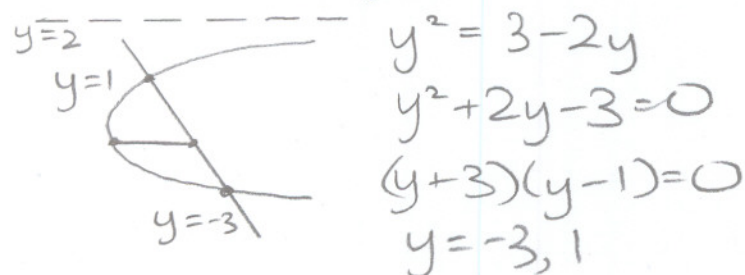 y=2
y=1
y=-3
y² = 3-2y
y²+2y-3=0
(y+3)(y-1)=0
y=-3, 1